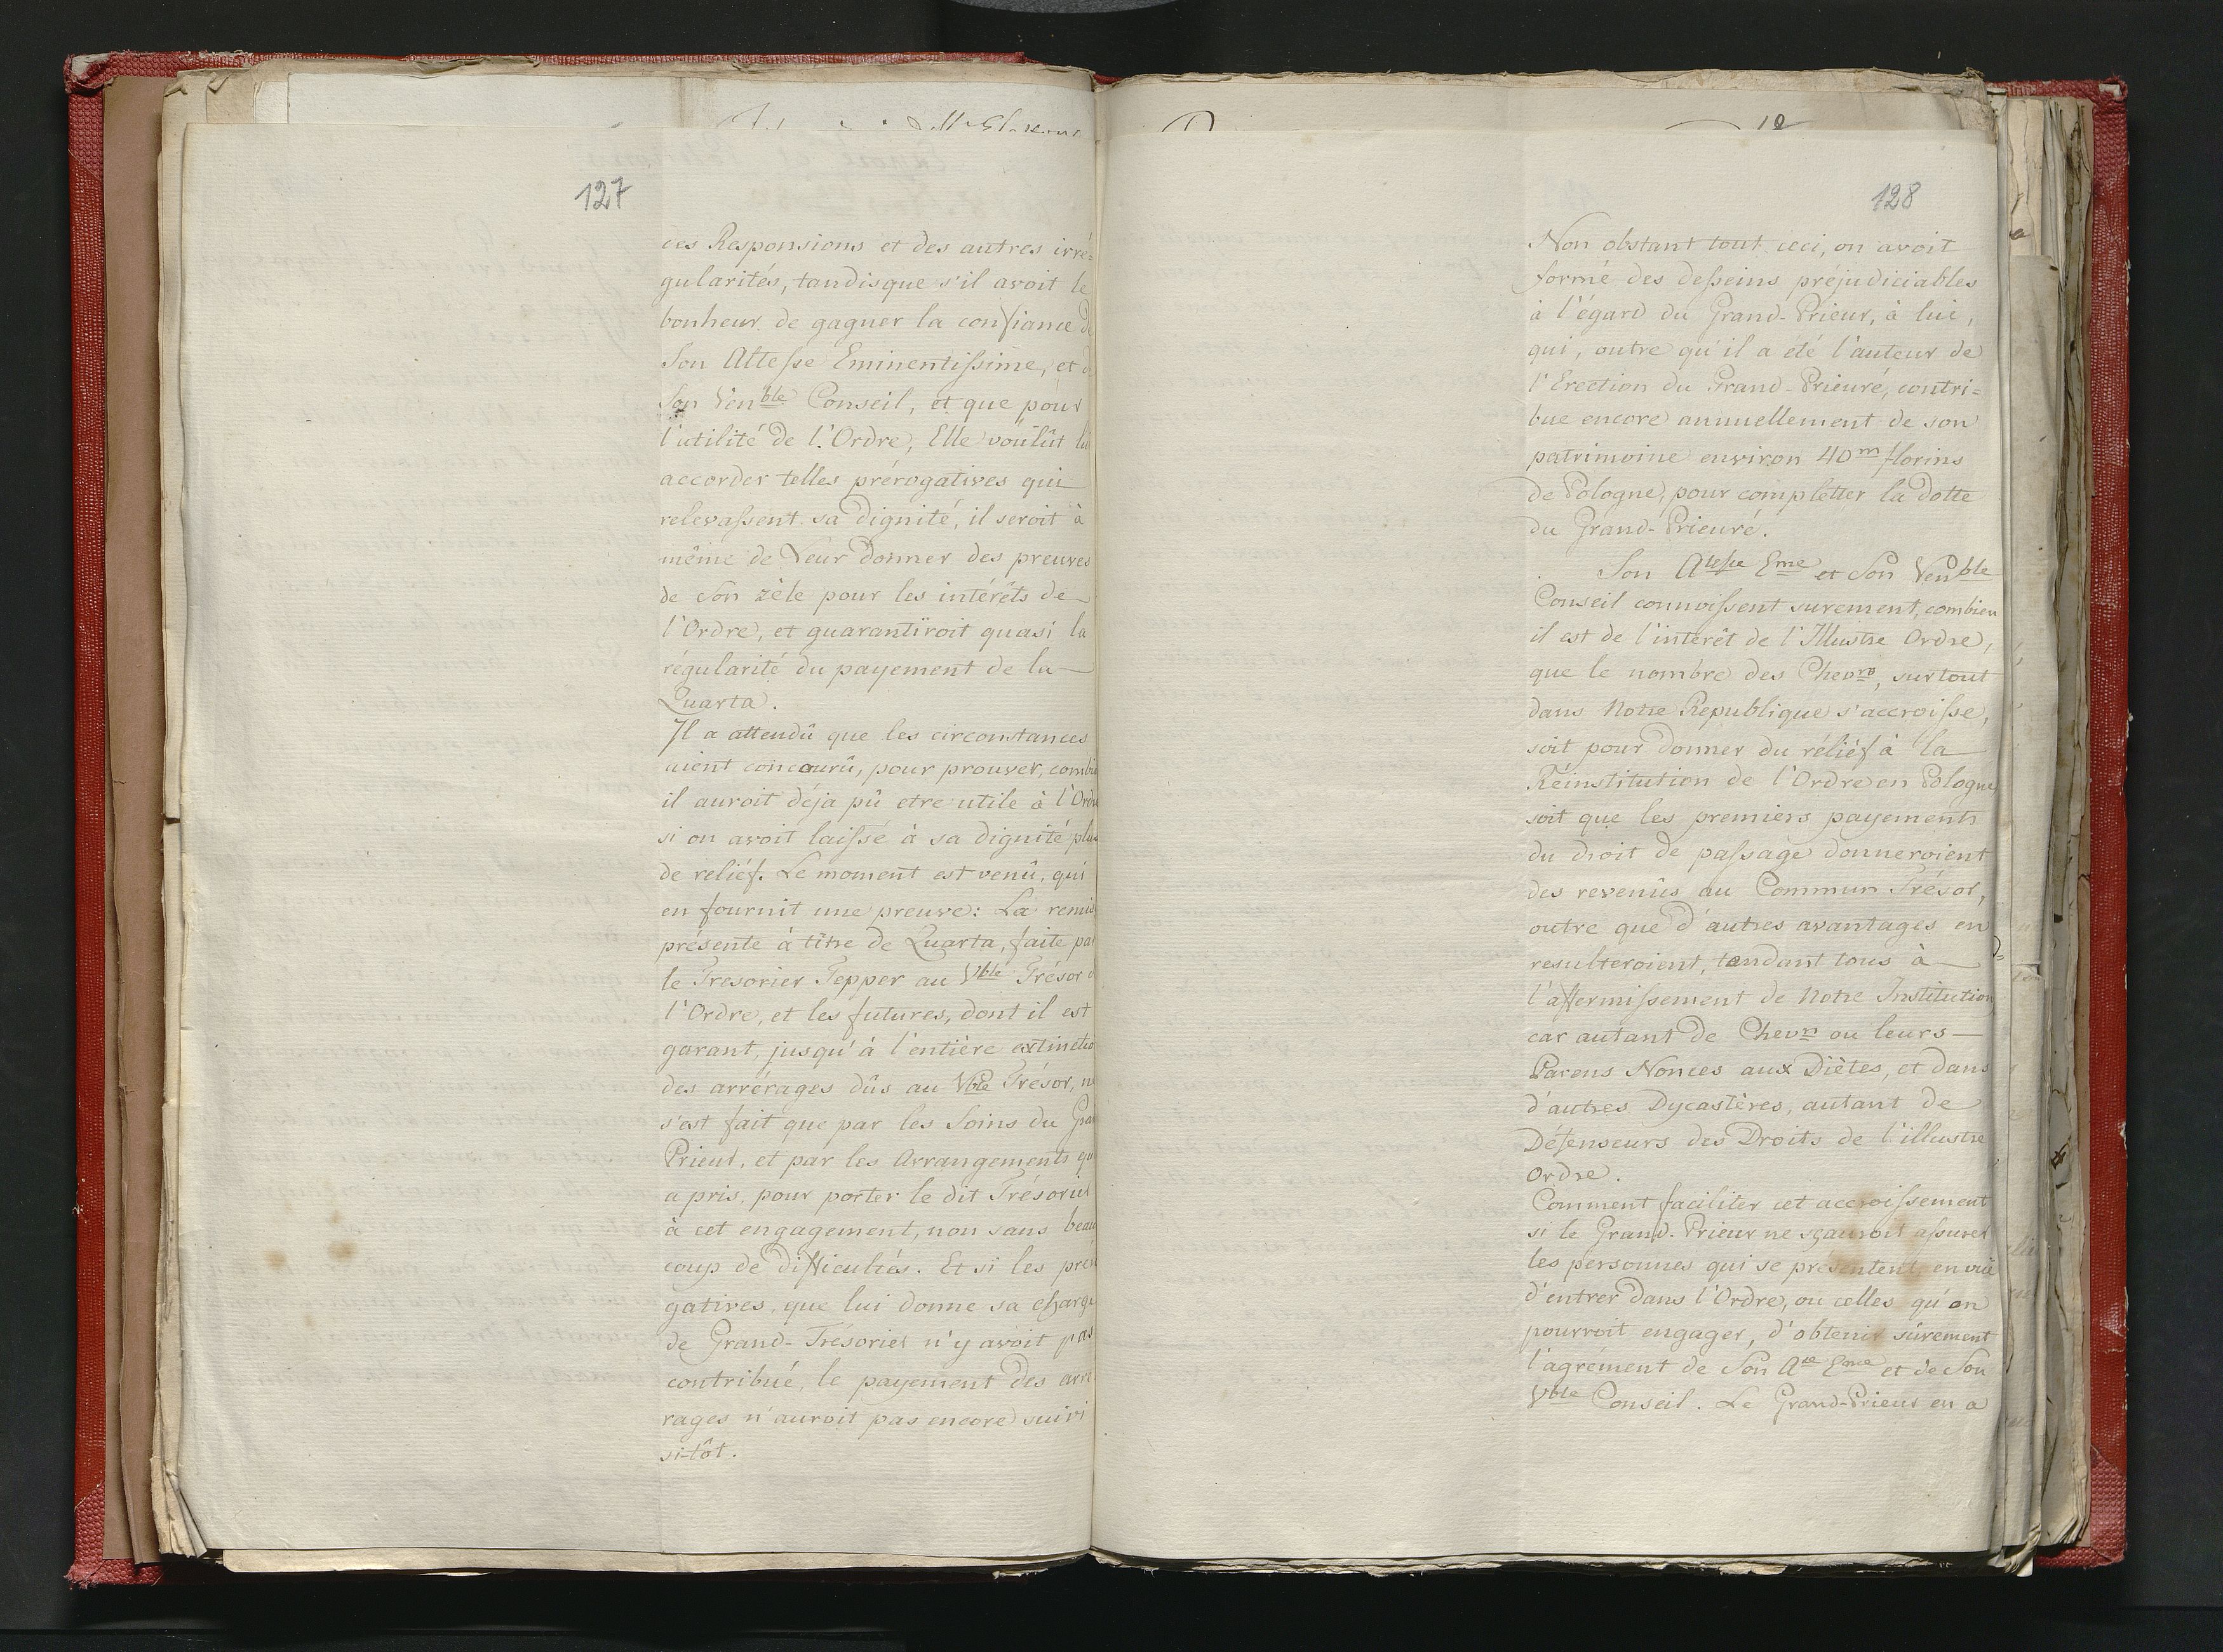 127
ces Responsions et des autres irré=
gularités, tandisque s'il avoit le
bonheur de gagner la confiance de
Son Altesse Eminentissime, et d
Son Venble Conseil, et que pour
l'utilité de l'Ordre, Elle voûlût lui
accorder telles prérogatives qui
relevassent sa dignité, il seroit à
même de Leur donner des preuves
de Son zèle pour les intérêts de
l'Ordre, et guarantiroit quasi la
régularité du payement de la
Quarta.
Il a attendû que les circonstances
aient concourû, pour prouver, combie
il auroit déja pû etre utile à l'Ordre
si on avoit laissé à sa dignité plus
de reliéf. Le moment est venû, qui
en fournit une preuve: La remis
présente à tître de Quarta, faite par
le Tresorier Tepper au Vble Trésor d
l'Ordre, et les futures, dont il est
garant, jusqu'à l'entière extinctio
des arrérages dûs au Vble Trésor, ne
s'est fait que par les Soins du Gran
Prieur, et par les Arrangements qu
a pris, pour porter le dit Trésorier
à cet engagement, non sans beau
coup de difficultés. Et si les préro
gatives, que lui donne sa charge
de Grand-Trésorier n'y avoit pas
contribué, le payement des arré
rages n'auroit pas encore suivi
si-tôt.
128
Non obstant tout ceci, on avoit
formé des desseins préjudiciables
à l'égard du Grand-Prieur, à lui,
qui, outre qu'il a eté l'auteur de
l'Erection du Grand-Prieuré, contri=
bue encore annuellement de son
patrimoine environ 40m florins
de Pologne, pour completter la Dotte
du Grand-Prieuré.
Son Atesse Eme et Son Venble
Conseil connoissent surement, combien
il est de l'intérêt de l'Illustre Ordre,
que le nombre des Chevrs, surtout
dans Notre Republique s'accroisse,
soit pour donner du réliéf à la
Réinstitution de l'Ordre en Pologne
soit que les premiers payements
du droit de passage donneroient
des revenûs au Commun Trésor,
outre que d'autres avantages en
resulteroient, tendant tous à
l'affermissement de Notre Institution,
car autant de Chevrs ou leurs
Parens Nonces aux Diètes, et dans
d'autres Dycastères, autant de
Défenseurs des Droits de l'illustre
Ordre.
Comment faciliter cet accroissement
si le Grand-Prieur ne sçauroit assurer
les personnes qui se présentent en vüe
d'entrer dans l'Ordre, ou celles qu'on
pourroit engager, d'obtenir sûrement
l'agrément de Son Ase Eme et de Son
Vble Conseil. Le Grand-Prieur en a